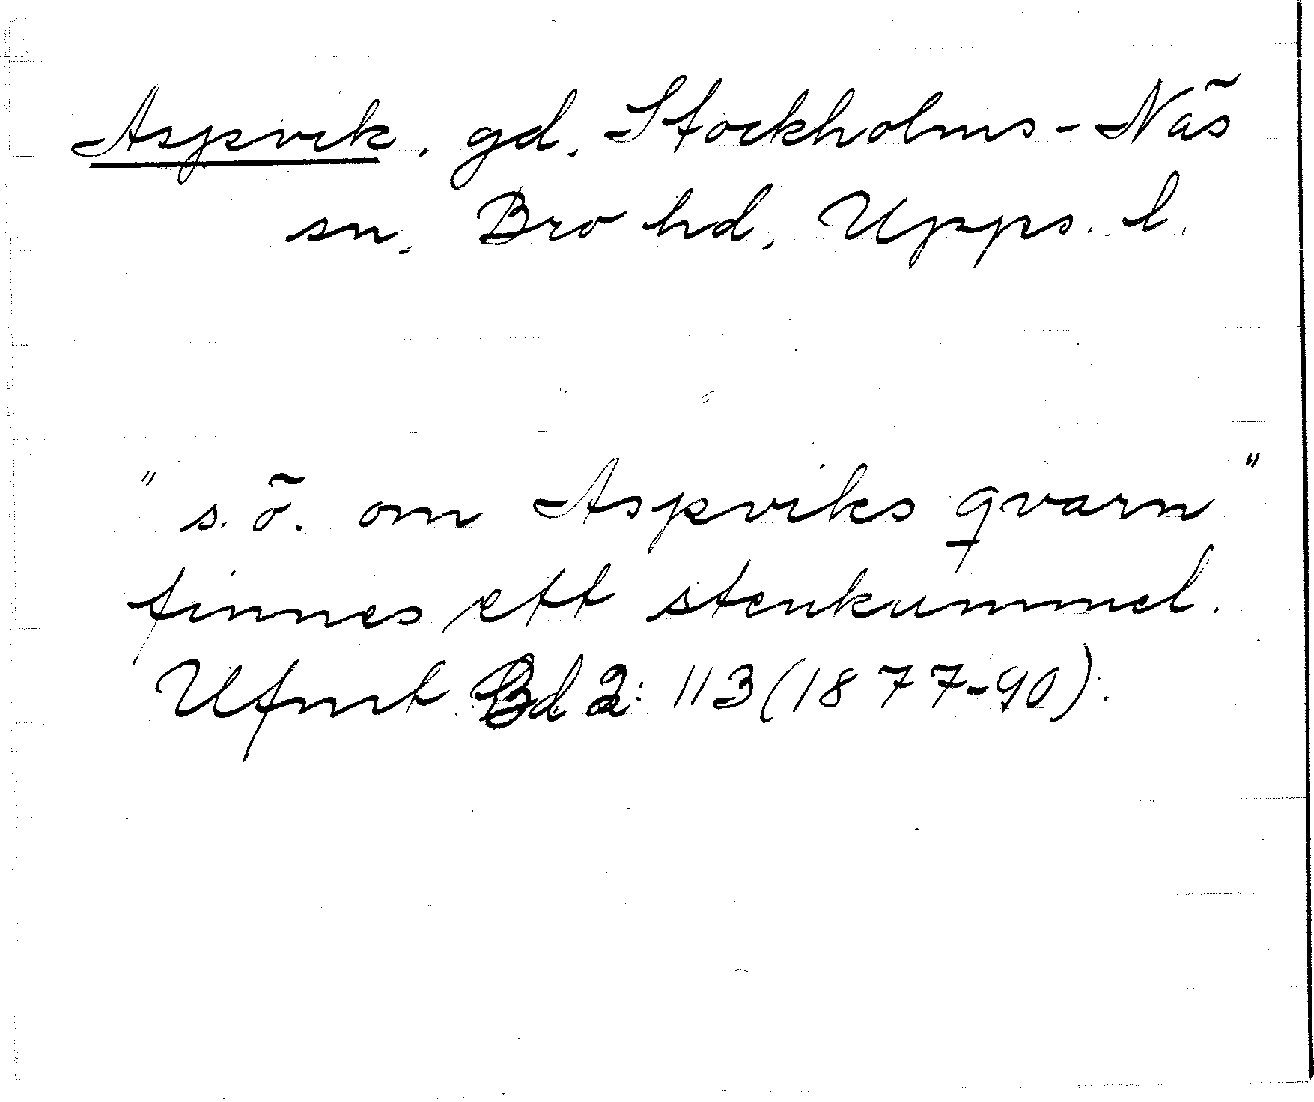 Aspvik, gd, Stockholms-Näs
sn, Bro hd, Upps. l.
" s.ö. om Aspviks qvarn "
finnes ett stenkummel.
Ufmt Bd 2: 113 (1877-90).